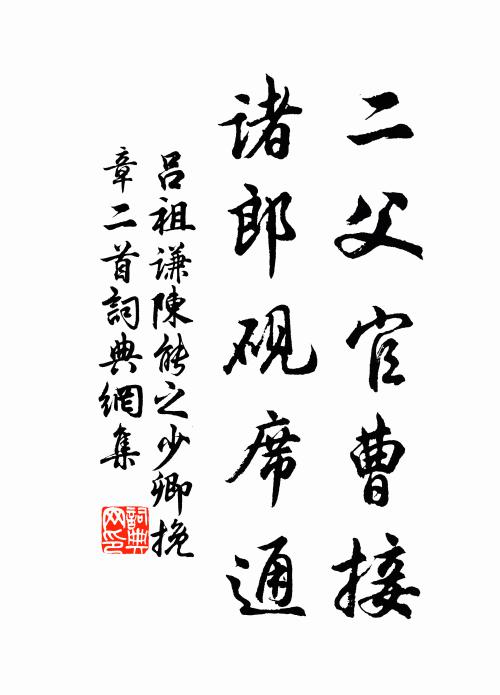 二父官曹接
诸郎砚席通
吕祖谦陳能之少卿挽
章二首詞典網集
詞典
网印